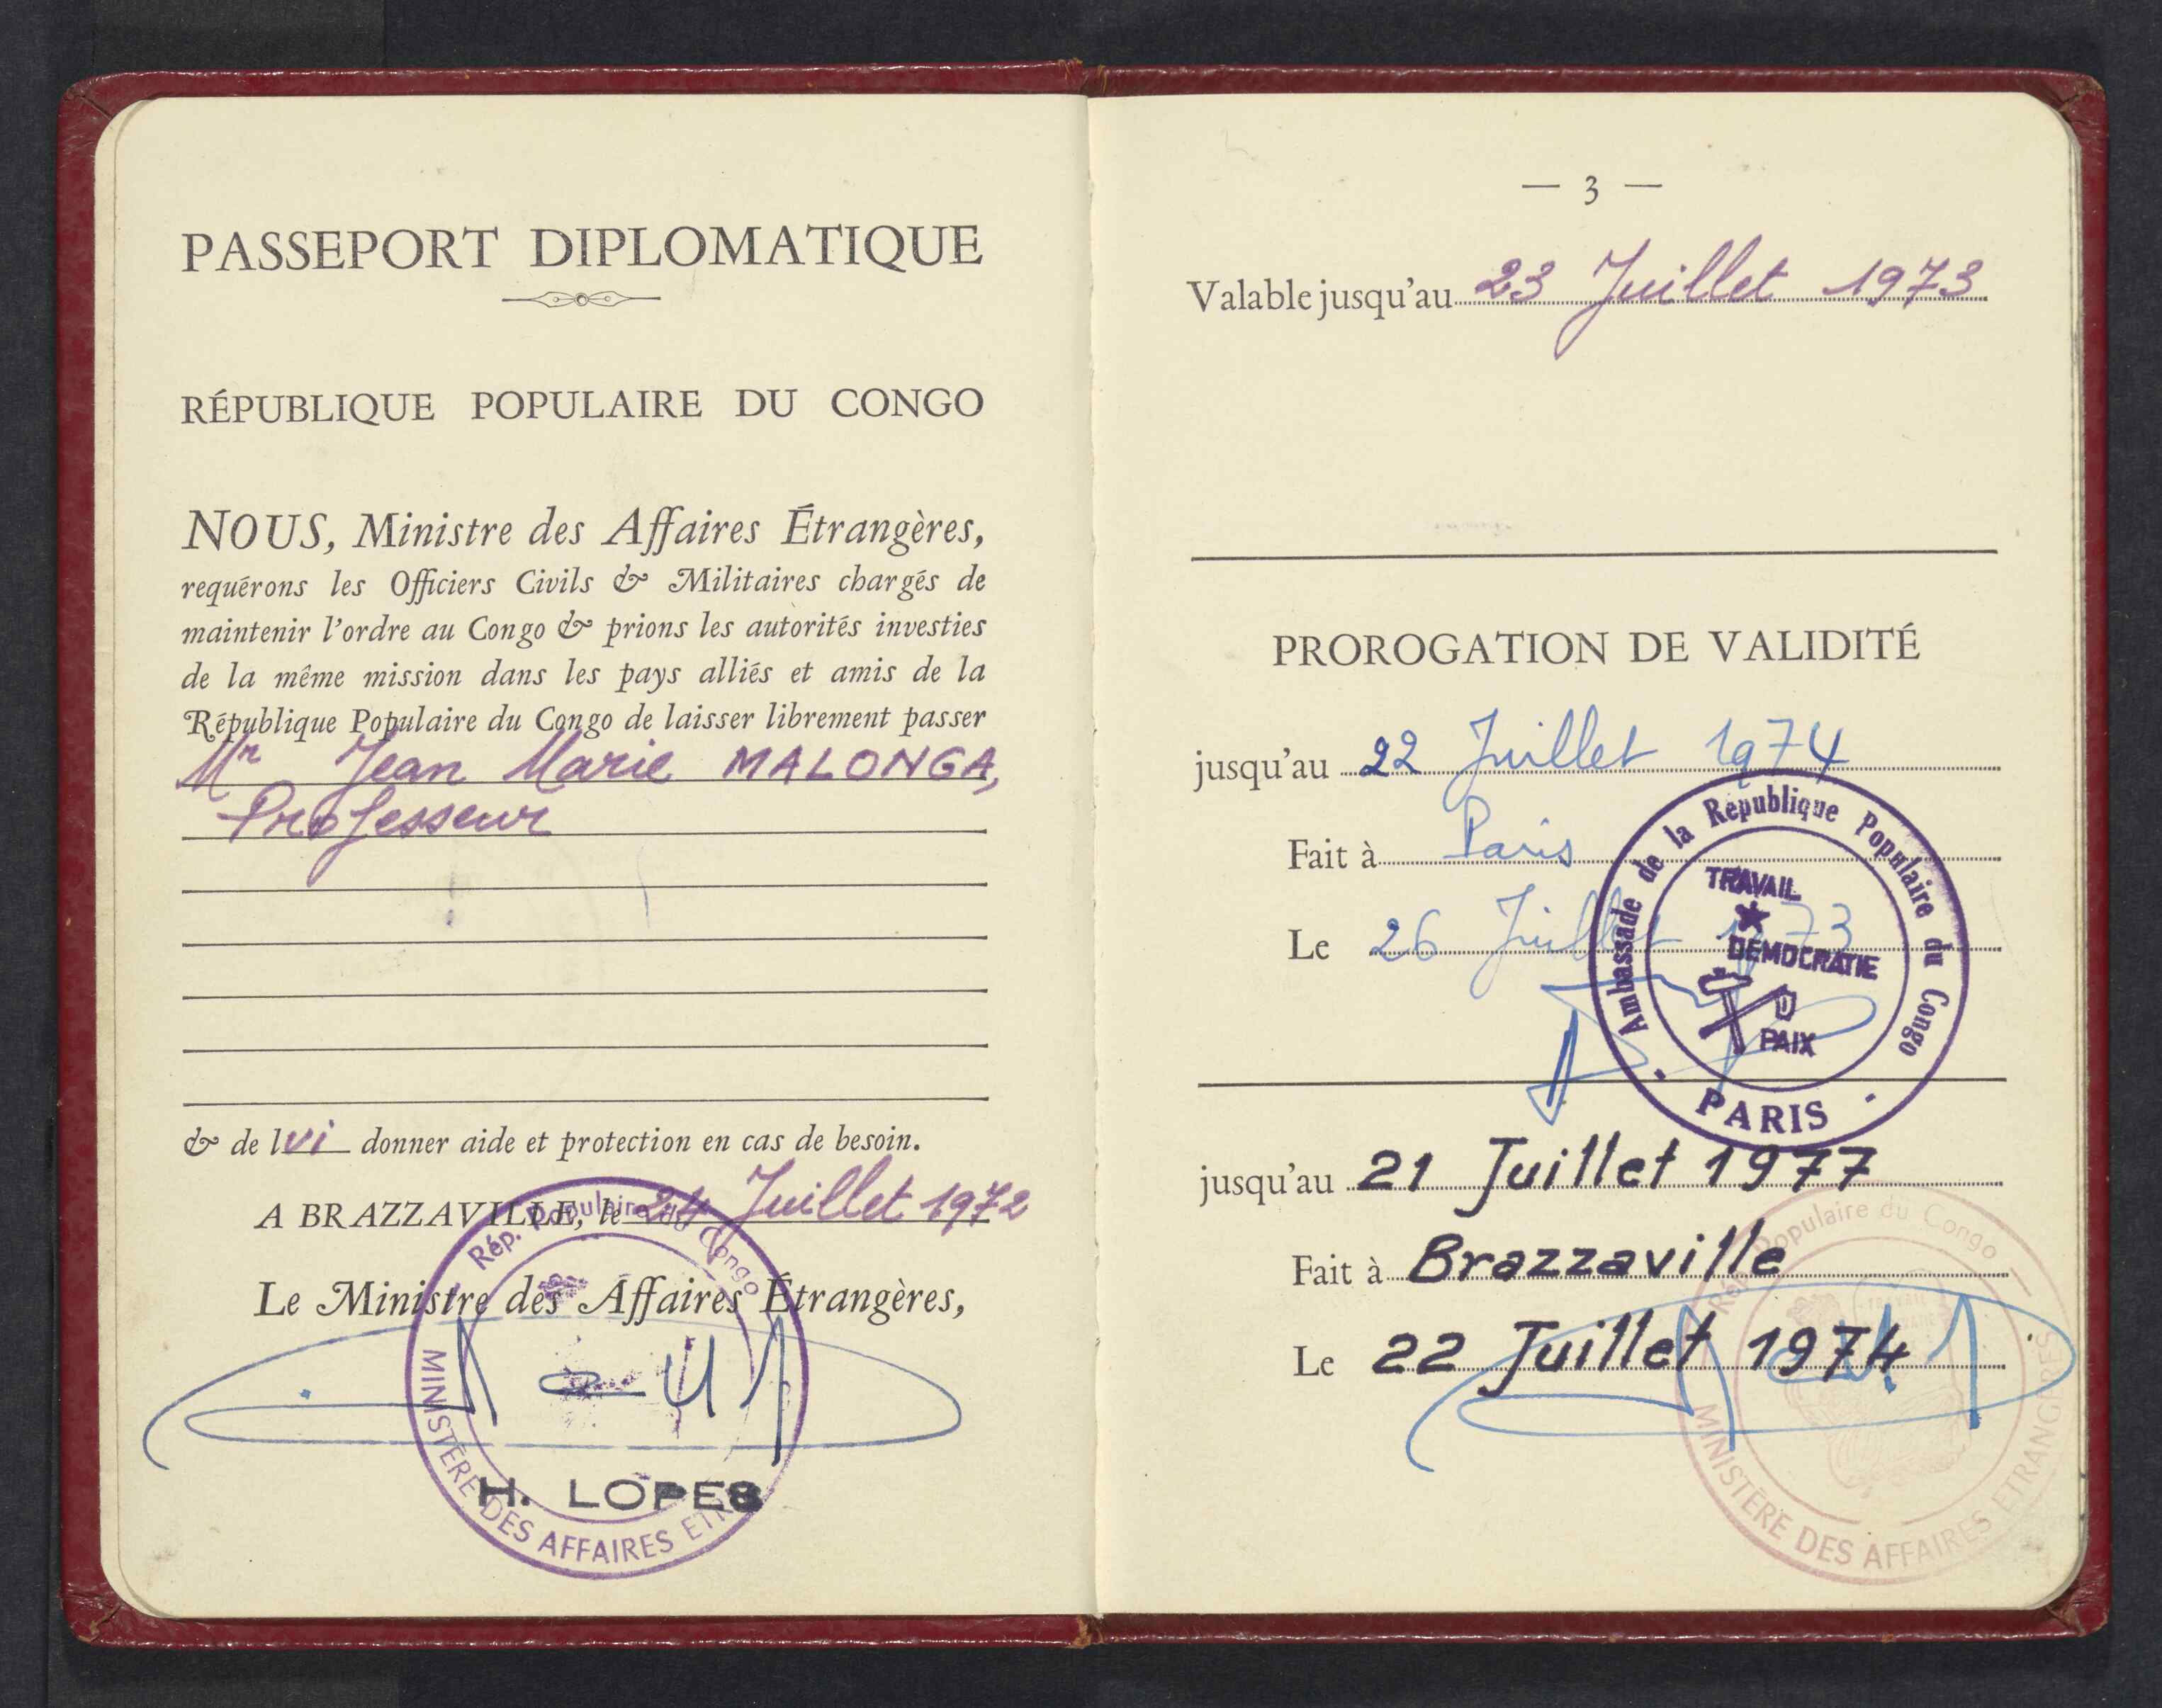 PASSEPORT DIPLOMATIQUE
RÉPUBLIQUE POPULAIRE DU CONGO
NOUS, Ministre des Affaires Étrangères,
requérons les Officiers Civils & Militaires chargés de
maintenir l'ordre au Congo & prions les autorités investies
de la même mission dans les pays alliés et amis de la
République Populaire du Congo de laisser librement passer
Mr Jean Marie MALONGA,
Professeur
& de lui donner aide et protection en cas de besoin.
A BRAZZAVILLE, le 24 Juillet 1972
Le Ministre des Affaires Étrangères,
Rép. Populaire du Congo
MINISTÈRE DES AFFAIRES
H. LOPES
— 3 —
Valable jusqu'au 23 Juillet 1973
PROROGATION DE VALIDITÉ
jusqu'au 22 Juillet 1974
Fait à Paris
Le 26 Juillet 1973
Ambassade de la République Populaire du Congo
TRAVAIL
DEMOCRATIE
PAIX
PARIS
jusqu'au 21 Juillet 1977
Fait à Brazzaville
Le 22 Juillet 1974
Rép. Populaire du Congo
MINISTÈRE DES AFFAIRES ETRANGÈRES